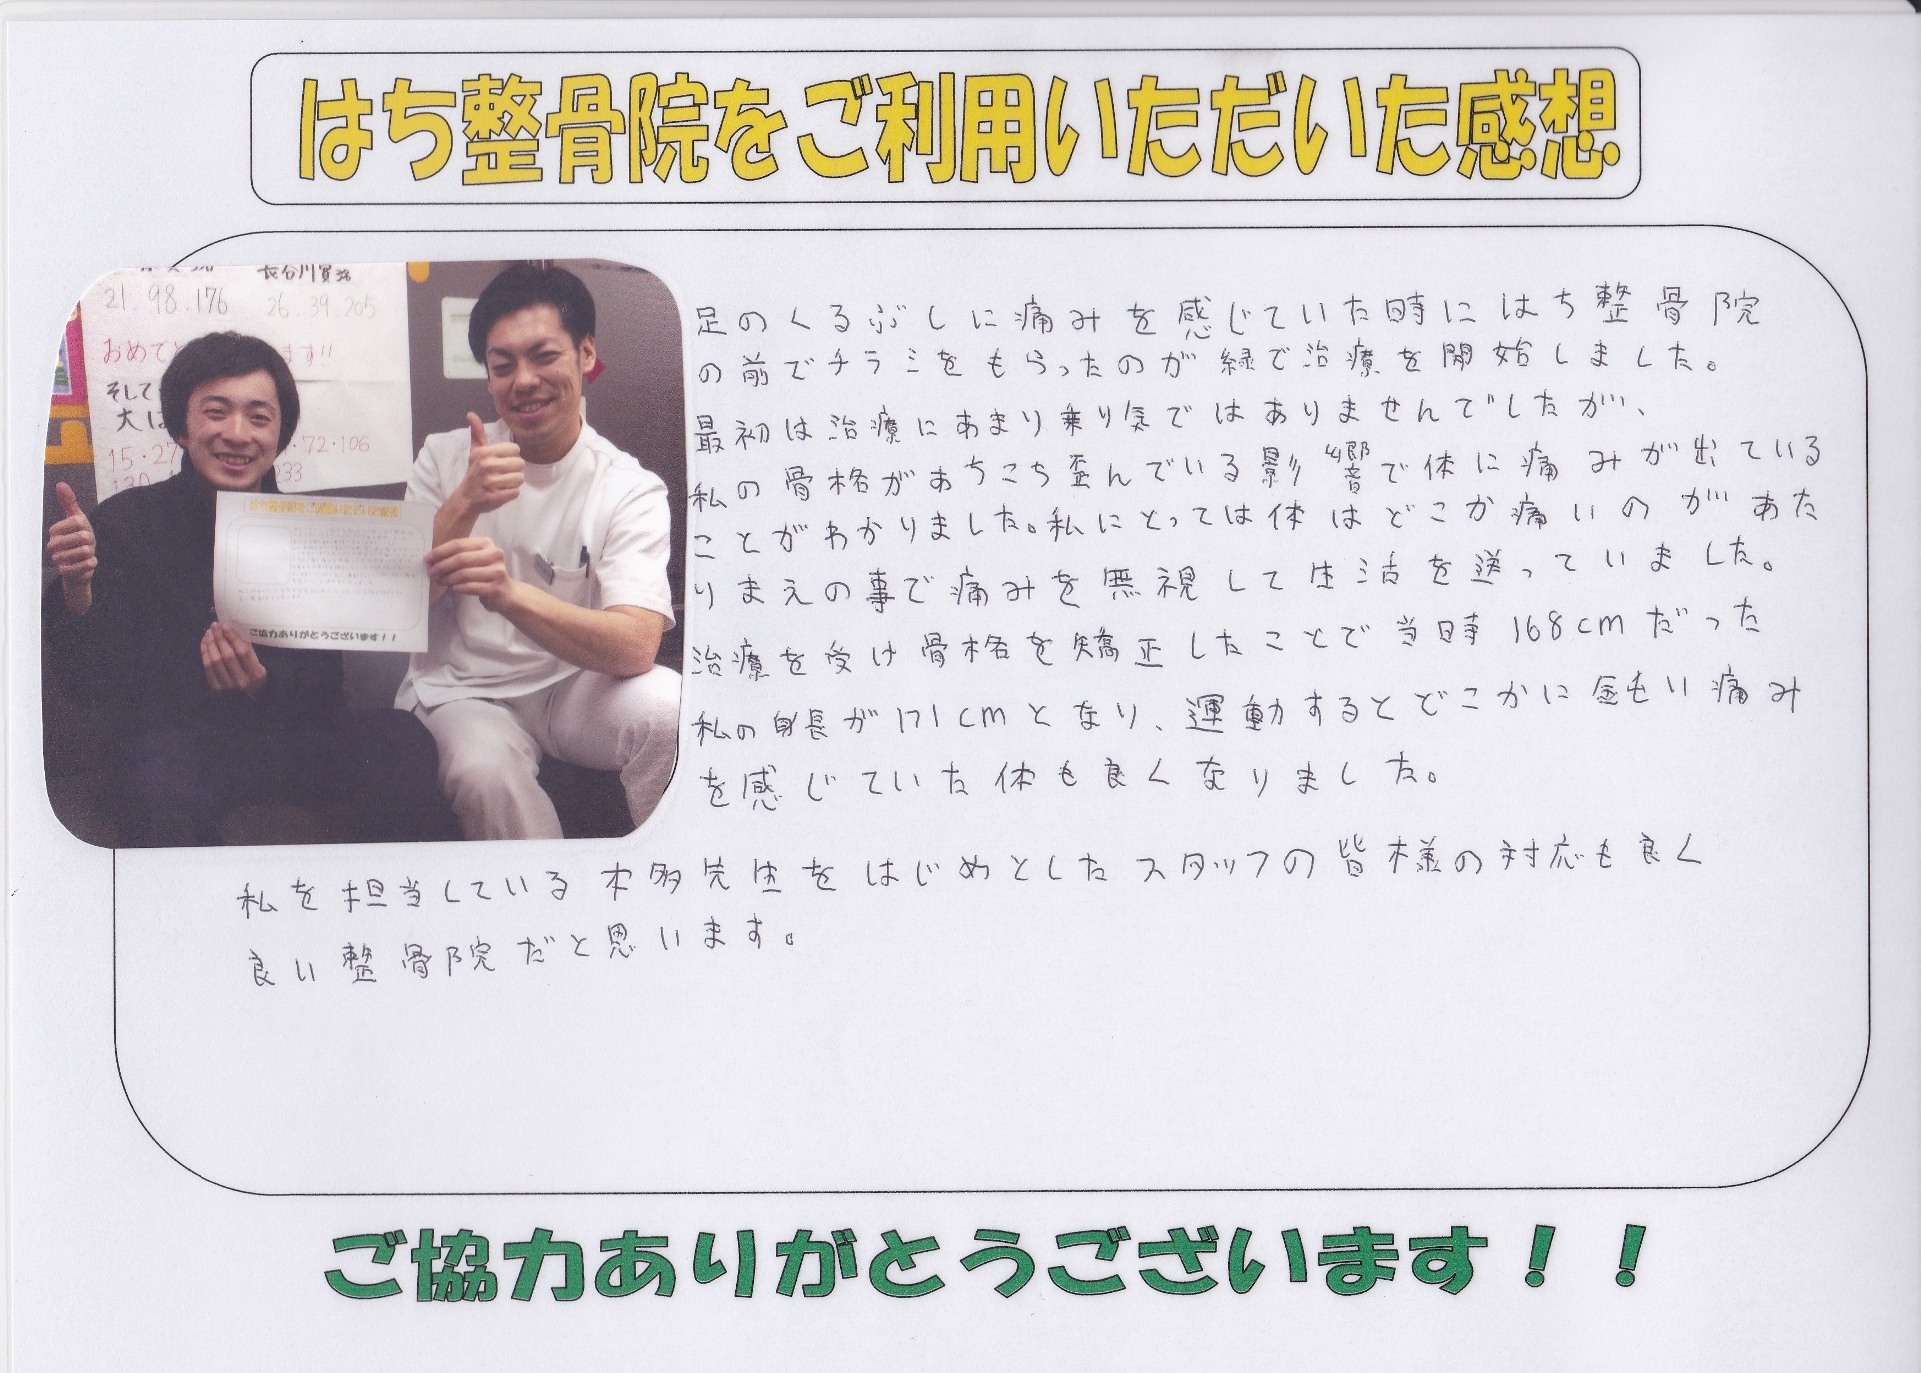 はち整骨院をご利用いただいた感想
長谷川賢
21.98.176 26.39.205
おめでと ます!!
そして
大は
15・27 ・72・106
130 233
ご協力ありがとうございます!!
足のくるぶしに痛みを感じていた時にはち整骨院
の前でチラシをもらったのが縁で治療を開始しました。
最初は治療にあまり乗り気ではありませんでしたが、
私の骨格があちこち歪んでいる影響で体に痛みが出ている
ことがわかりました。私にとっては体はどこか痛いのがあた
りまえの事で痛みを無視して生活を送っていました。
治療を受け骨格を矯正したことで当時168cmだった
私の身長が171cmとなり、運動するとどこかに鈍い痛み
を感じていた体も良くなりました。
私を担当している本多先生をはじめとしたスタッフの皆様の対応も良く
良い整骨院だと思います。
ご協力ありがとうございます!!